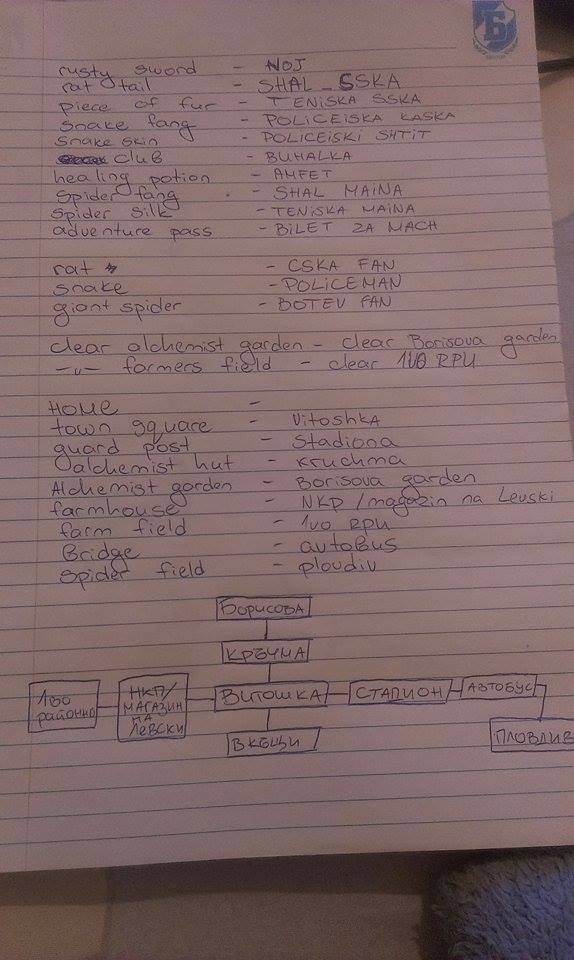 Б
rusty sword - NOJ
rat tail - SHAL SSKA
piece of fur - TENISKA SSKA
snake fang - POLICEISKA KASKA
snake skin - POLICEISKI SHTIT
club - BUHALKA
healing potion - AMFET
Spider fang - SHAL MAINA
Spider silk - TENISKA MAINA
adventure pass - BILET ZA MACH
rat - CSKA FAN
snake - POLICEMAN
giant spider - BOTEV FAN
clear alchemist garden - clear Borisova garden
-"- farmers field - clear 1VO RPU
HOME -
town square - VitoshKA
guard post - Stadiona
alchemist hut - kruchma
Alchemist garden - Borisova garden
farmhouse - NKP/magazin na Levski
farm field - 1vo RPU
Bridge - avtoBus
spider field - plovdiv
БОРИСОВА
КРЪЧМА
1ВО РАЙОННО
НКП/ МАГАЗИН НА ЛЕВСКИ
ВИТОШКА
СТАДИОН
АВТОБУС
ВКЪЩИ
ПЛОВДИВ